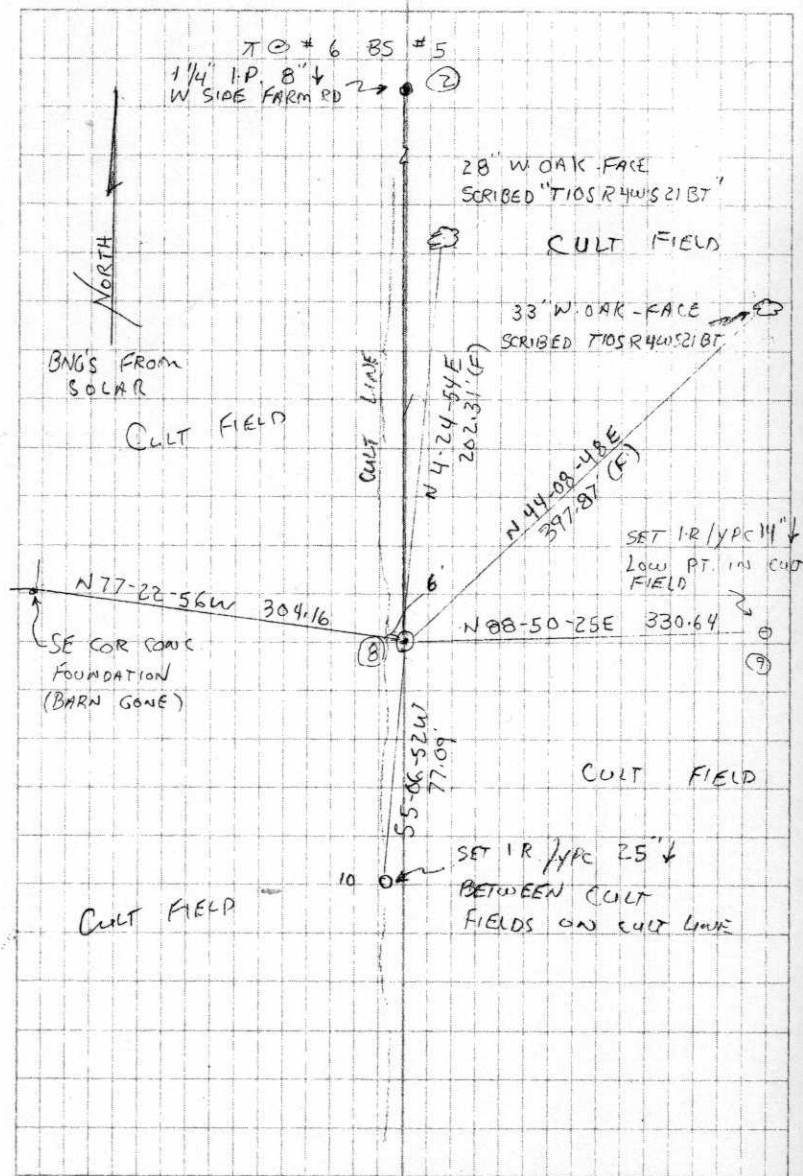 ⊼ ⊙ # 6 BS # 5
1 1/4" I.P. 8" ↓
W SIDE FARM RD
2
28" W. OAK - FACE
SCRIBED "T10S R4W S21 BT"
CULT FIELD
NORTH
33" W. OAK - FACE
SCRIBED T10S R4W S21 BT.
BNG'S FROM
SOLAR
CULT FIELD
CULT LINE
N 4-24-54 E
202.31' (F)
N 44-08-48 E
397.87' (F)
SET I.R/YPC 14" ↓
LOW PT. IN CULT
FIELD
6'
N 77-22-56 W 304.16
N 88-50-25 E 330.64
8
9
SE COR CONC
FOUNDATION
(BARN GONE)
S 5-06-52 W
77.09'
CULT FIELD
SET I R / YPC 25" ↓
10
BETWEEN CULT
FIELDS ON CULT LINE
CULT FIELD